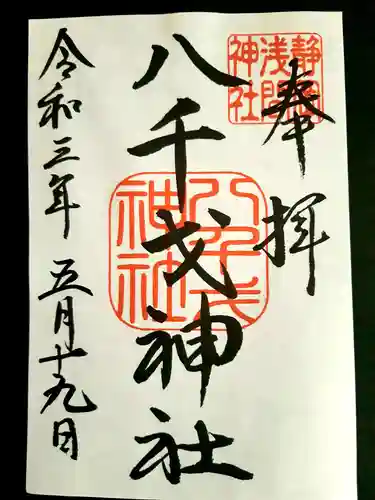 奉拝
静岡浅間神社
八千戈神社
八千戈神社
令和三年五月十九日